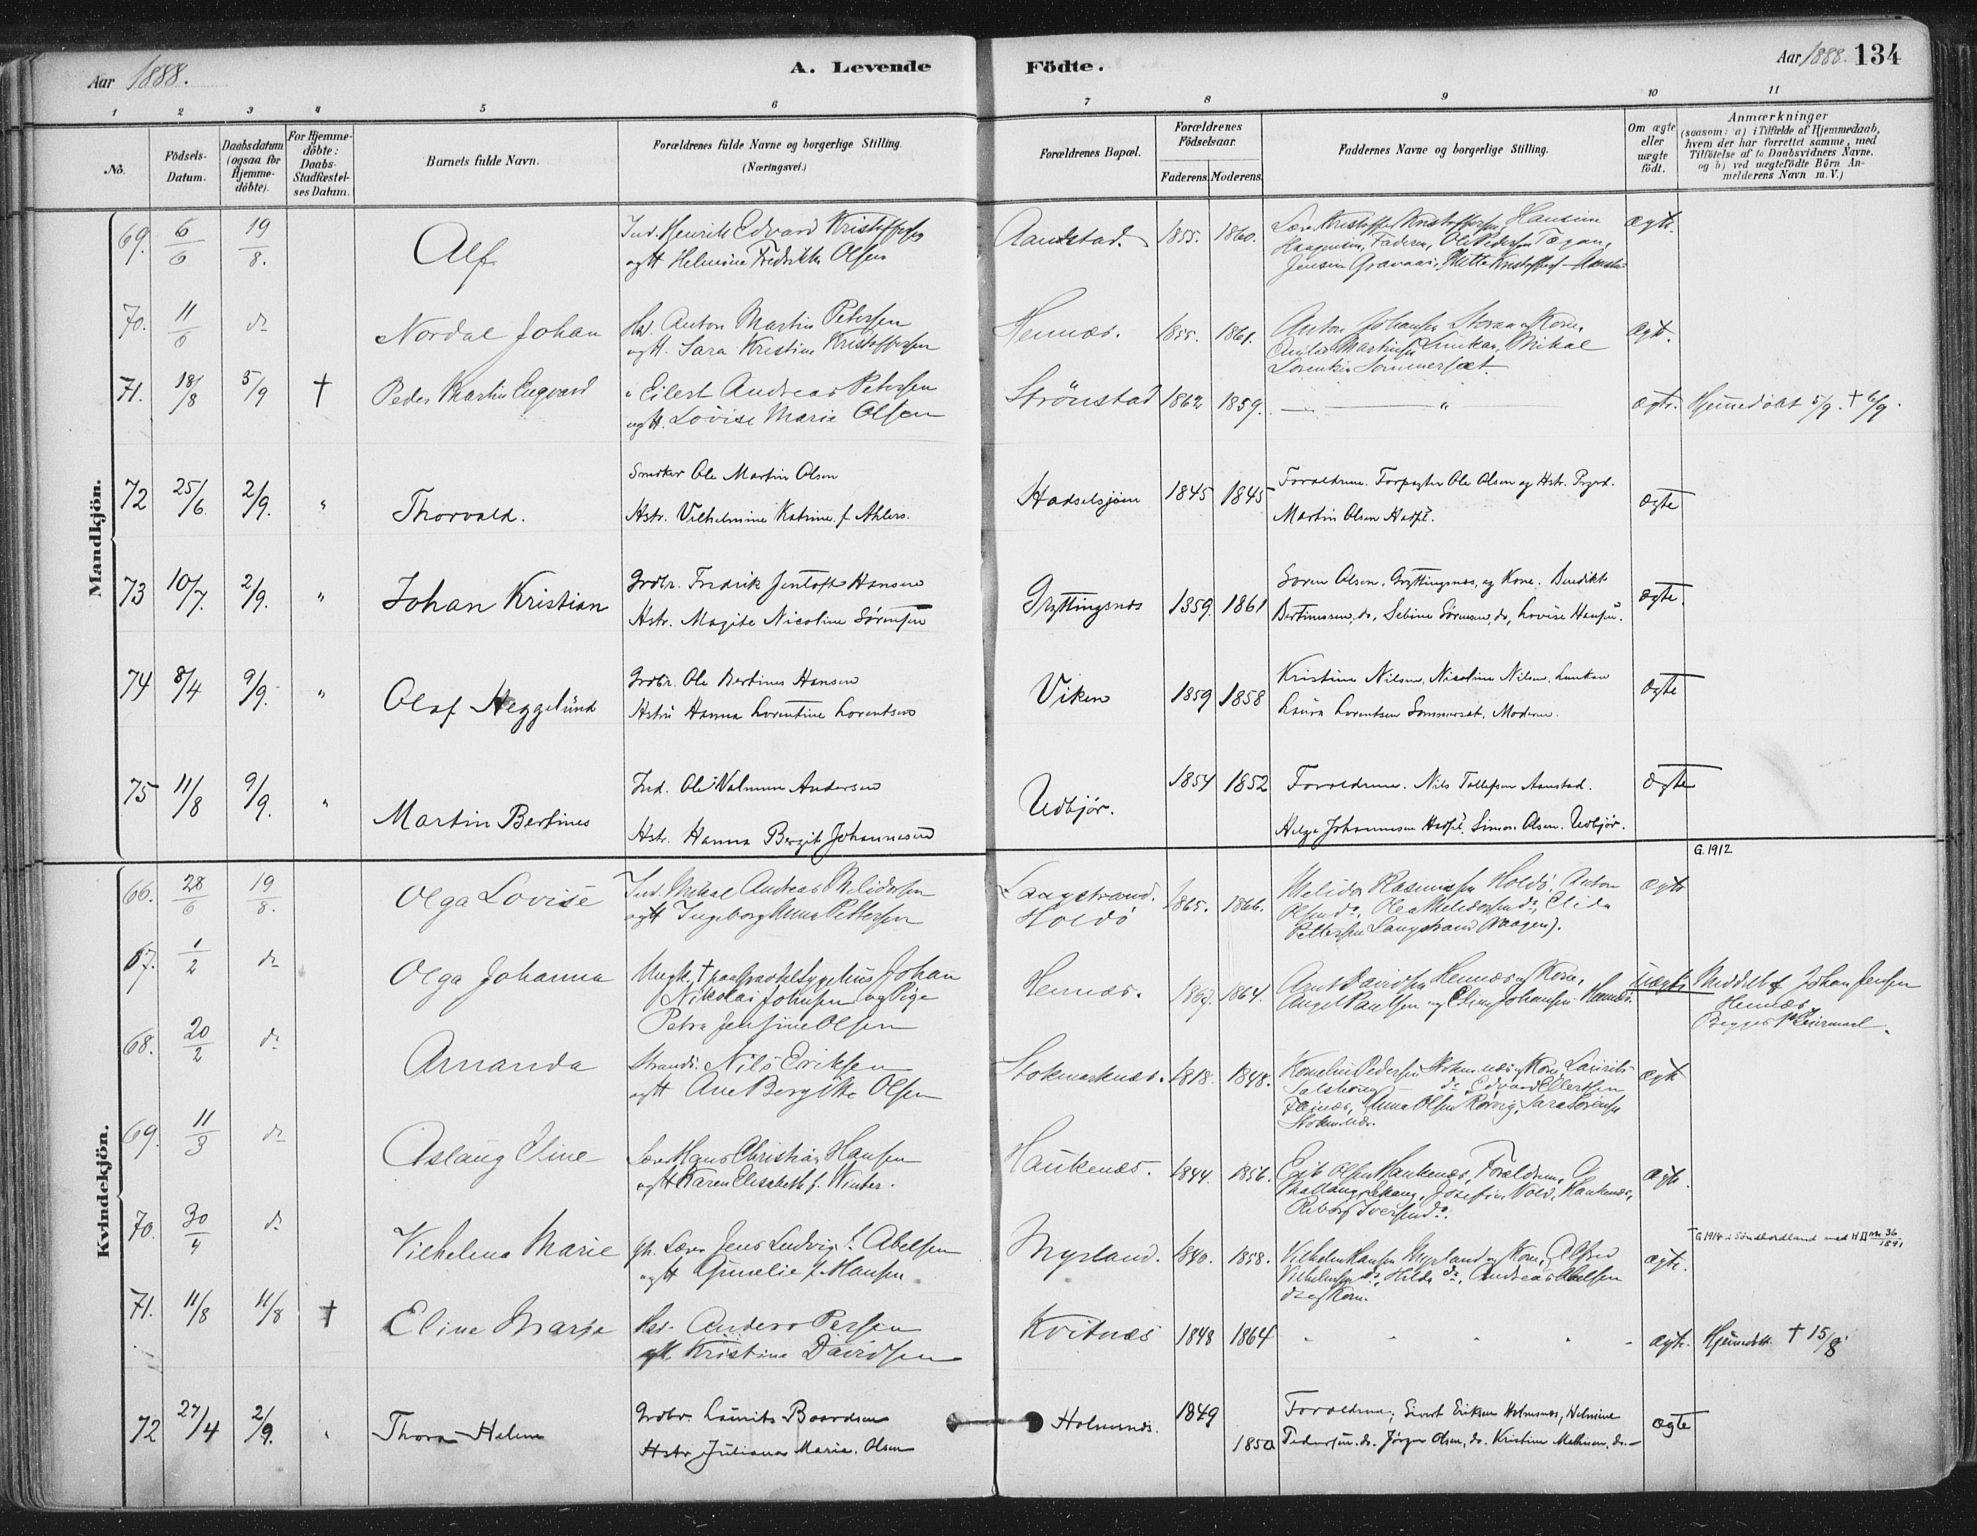 Aar 1888.
A. Levende
Födte.
Aar 1888. 134
1 2 3 4 5 6 7 8 9 10 11
No.
Födsels-Datum.
Daabsdatum (ogsaa for Hjemme-döbte).
For Hjemme-döbte: Daabs-Stadfæstel-ses Datum.
Barnets fulde Navn.
Forældrenes fulde Navne og borgerlige Stilling. (Næringsvei.)
Forældrenes Bopæl.
Forældrenes Födselsaar.
Faderens. Moderens.
Faddernes Navne og borgerlige Stilling.
Om ægte eller uægte födt.
Anmærkninger
(saasom: a) i Tilfælde af Hjemmedaab, hvem der har forrettet samme, med Tilföielse af to Daabsvidners Navne. og b) ved uægtefödte Börn An-melderens Navn m. V.)
Mandkjön.
69. 6/6 19/8. Alf Ind. Henrik Edvard Kristoffersen
ogH Helmine Fredrikke Olsen
Aandstad. 1855. 1860. Ægte.
70. 11/6 do Nordal Johan Hd. Anton Martin Petersen
ogH. Sara Kristine Kristoffersen
Hennæs. 1855. 1861. Ægte.
71. 18/8 5/9 † Peder Martin Engvard " Eilert Andreas Petersen
ogH. Lovise Marie Olsen
Strönstad 1862 1859. — " — ægte. Hjemmedöbt 5/9. † 6/9.
72 25/6. 2/9. " Thorvald. Snedker Ole Martin Olsen
Hstr. Vilhelmine Katrine f. Ahlers.
Hadselsjöen 1845 1845 Forældrene. Forpagter Ole Olsen og Hstr.
Martin Olsen Hadsel. ægte
73 10/7. 2/9. " Johan Kristian Grdbr. Fredrik Jentoft Hansen
Hstr. Magite Nicoline Sørensen
Gryttingsnes 1859. 1861 Soren Olsen, Gryttingsnes, og Kone. Bendikt
Bertinussen, do, Sebine Sörensen, do, Lovise Hansen. ægte.
74 8/4 9/9. " Olaf Heggelund Grdbr. Ole Bertines Hansen
Hstru Hanna Lorentine Lorentsen
Viken 1859 1858 Kristine Nilsen, Nicoline Nilsen,
Laura Lorentsen Sommerset, Moderen. ægte
75 11/8 9/9. " Martin Bertines Ind. Ole Valmun Andersen
Hstr. Hanna Bergite Johannesen
Udbjör. 1854 1852 Forældrene. Nils Tollefsen Aanstad.
Helge Johannesen Hadsel. Simon Olsen. Udbjör. ægte
Kvindekjön.
G. 1912
66. 28/6 19/8. Olga Lovise Ind. Mikal Andreas Melidorsen
ogH Ingeborg Anna Pettersen
Langstrand. Holdö 1865. 1866. Melidor Rasmussen Holdö, Anton
Olsen do, Olea Melidorsen do, Elida
Pettersen Langstrand (Vaagen). Ægte
67. 1/2 do Olga Johanna Ungk. † paa Sygehus Johan
Nikolai Johnsen og Pige
Petra Jensine Olsen
Hennæs. 1864. Arnt Davidsen Hennæs og Kone,
Angel Paulsen og Eline Johansen Hennæs. Uægte
Meddelt af Johan Jensen
Hennæs.
Begges 1ste Leiermaal.
68. 20/2 do Amanda Strands. Nils Eriksen
ogH Ane Bergitte Olsen
Stokmarknæs. 1818. 1848. Kornelius Pedersen Stokmnæs og Kone
do Edvard Ellertsen
Anna Olsen Rörvig, Sara Sörensen
Stokmnæs. ægte
69. 11/3 do Aslaug Eline Lærer Hans Christian Hansen
ogH Karen Elisabeth f. Winter.
Haukenæs. 1844. 1856. Olsen Haukenæs, Forældrene,
Josefine Vold, Haukenæs,
Iversen do. ægte.
70. 30/4 do Vilhelma Marie Gh. Lærer Jens Ludvig Abelsen
ogH Gunelie f. Hansen
Myrland. 1840. 1858. Vilhelm Hansen Myrland og Kone, Alfred
Vilhelmsen do, Hilda do, Andreas Abelsen
do og Kone. ægte.
G. 1914 i Söndhordland med H II No 36/1891
71. 11/8 11/8 † Eline Marie Hd. Anders Persen
ogH Kristine Davidsen
Kvitnæs 1848 1864 " " " ægte. Hjemmedöbt † 15/8.
72 27/4 2/9. " Thora Helene Grdbr. Laurits Baardsen
Hstr. Juliana Marie Olsen
Holmsnes. 1849 1850 Forældrene; Sivert Eriksen Holmsnes, Helmine
Pedersen. do. Jörgen Olsen, do. Kristine Mathisen, do. ægte